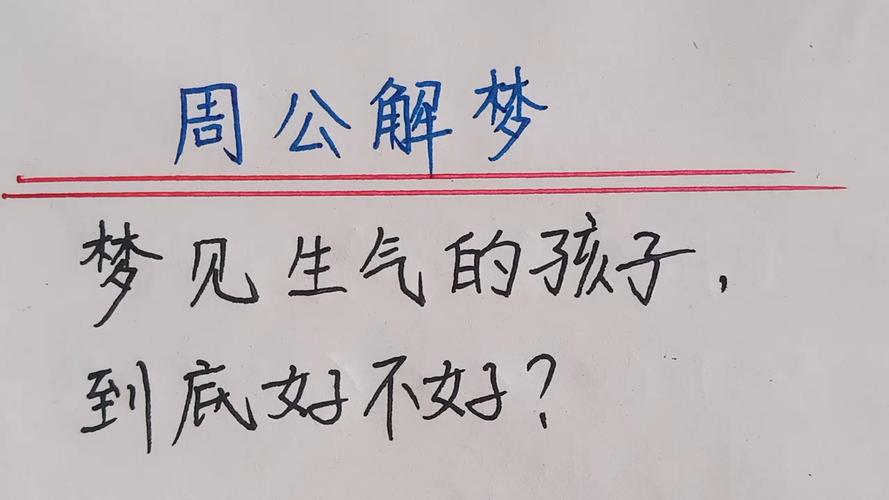 周公解梦
梦见生气的孩子，
到底好不好？